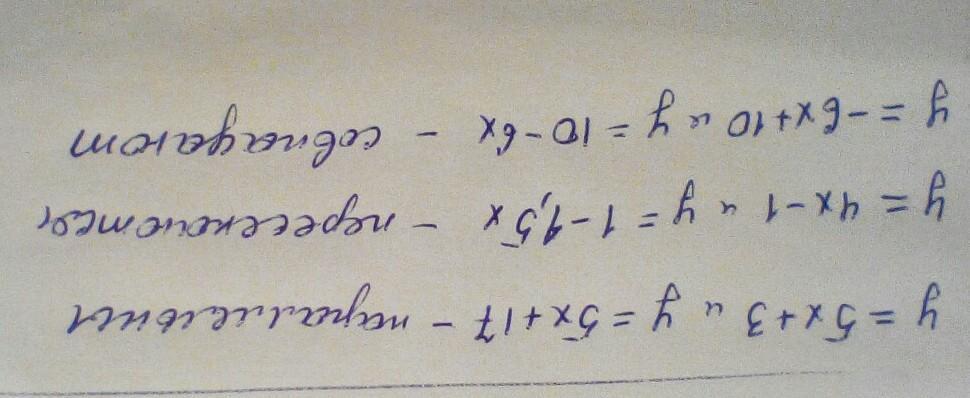 y = 5x+3 и y = 5x+17 – паралельны
y = 4x-1 и y = 1-1,5x – пересекаются
y = -6x+10 и y = 10-6x – совпадают